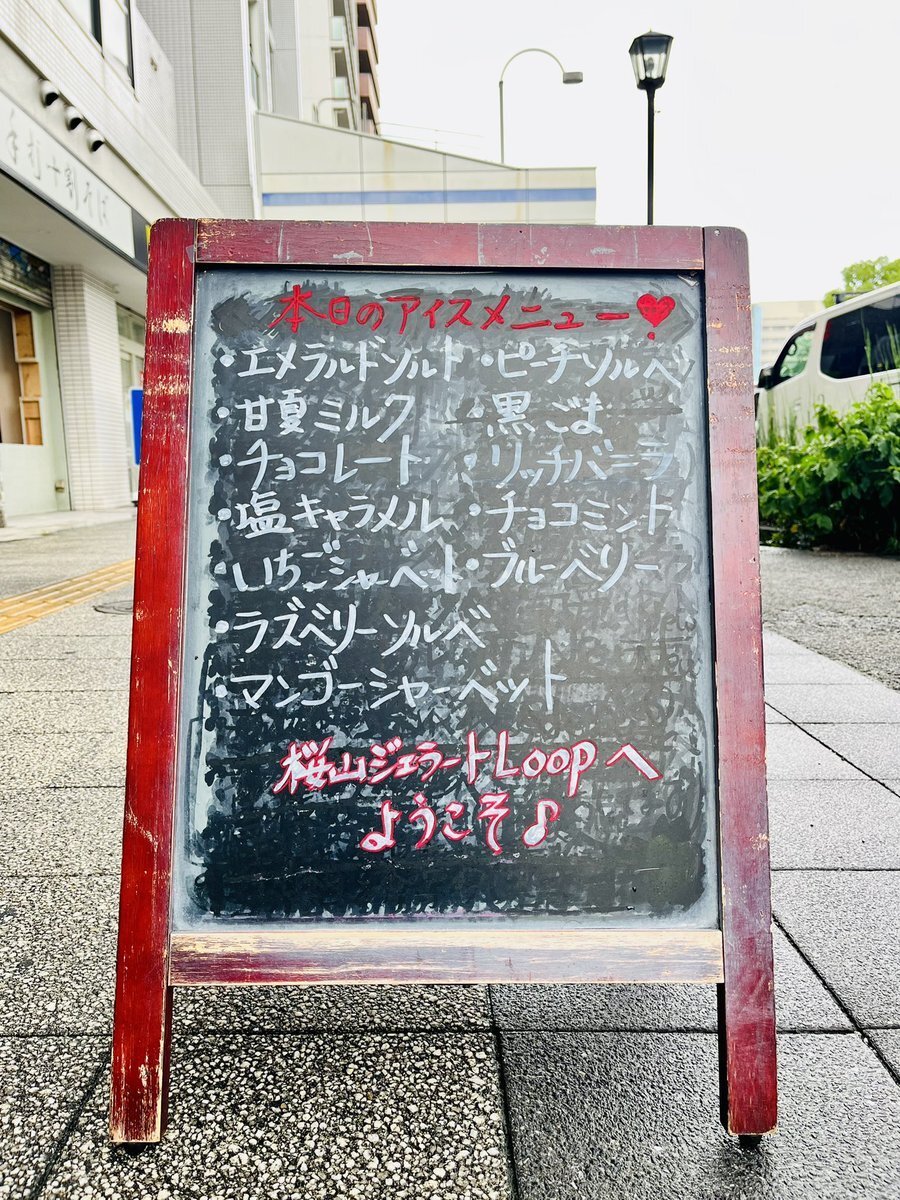 手打十割そば
本日のアイスメニュー♥
・エメラルドソルト ・ピーチソルベ
・甘夏ミルク ・黒ごま
・チョコレート ・リッチバニラ
・塩キャラメル ・チョコミント
・いちごシャーベット ・ブルーベリー
・ラズベリーソルベ
・マンゴーシャーベット
桜山ジェラートLoopへ
ようこそ♪